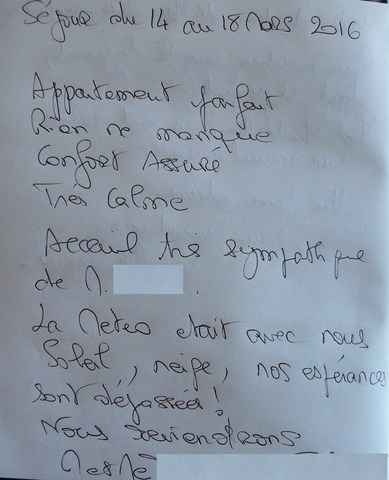 Séjour du 14 au 18 Mars 2016
Appartement parfait
Rien ne manque
Confort Assuré
Très Calme
Acceuil très sympathique
de M.
La Meteo etait avec nous
Soleil, neige, nos espérances
sont dépassées!
Nous reviendrons